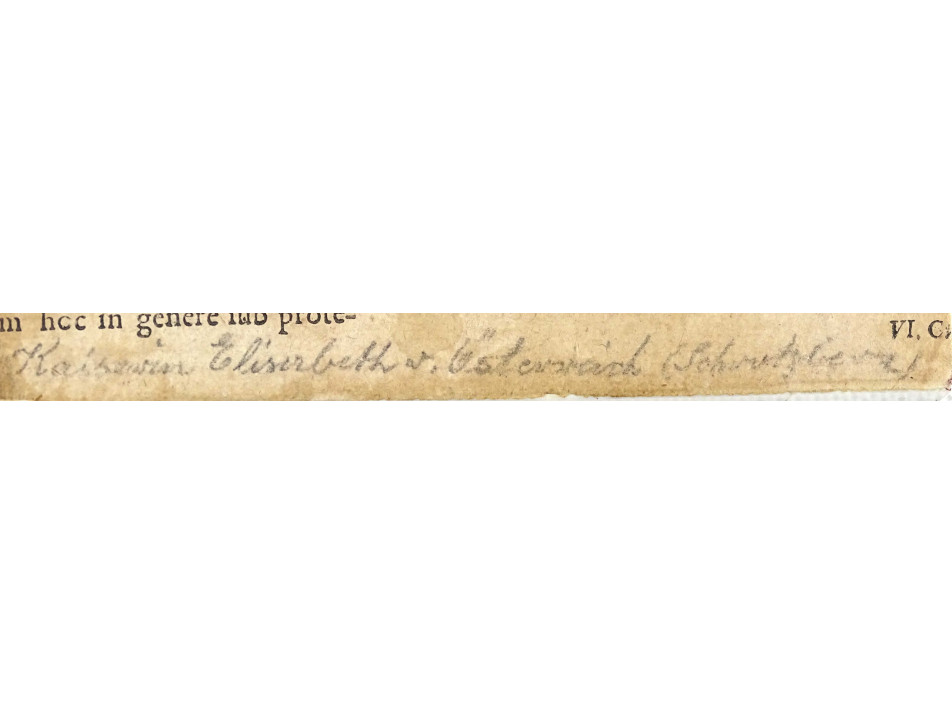 m hoc in genere sub prote-
VI. C
Kaiserin Elisabeth v. Österreich (Schratzberg)